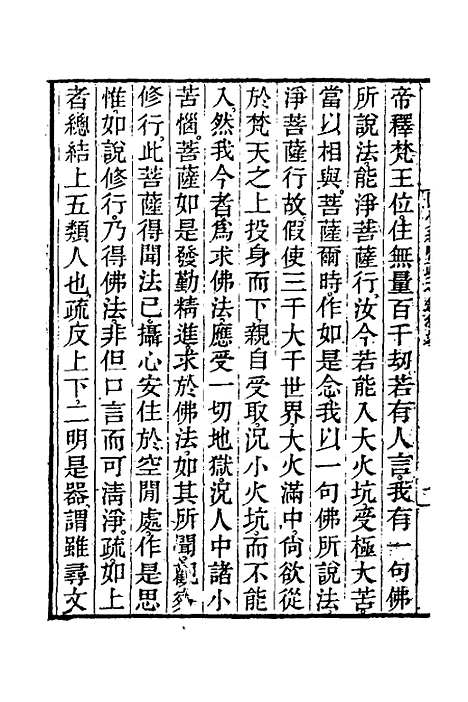 帝釋梵王位住無量百千刼若有人言我有一句佛
所說法能淨菩薩行汝今若能入大火坑受極大苦
當以相與菩薩爾時作如是念我以一句佛所說法
淨菩薩行故假使三千大千世界大火滿中尙欲從
於梵天之上投身而下親自受取況小火坑而不能
入然我今者爲求佛法應受一切地獄況人中諸小
苦惱菩薩如是發勤精進求於佛法如其所聞觀察
修行此菩薩得聞法已攝心安住於空閒處作是思
惟如說修行乃得佛法非但口言而可淸淨疏如上
者總結上五類人也疏反上下二明是器謂雖尋文